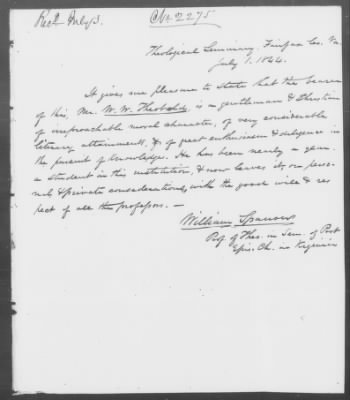 Recd July 3. No 2275
Theological Seminary, Fairfax Co. Va.
July 1. 1844.
It gives me pleasure to state that the bearer
of this, Mr. W. W. Theobalds, is a gentleman & Christian
of irreproachable moral character, of very considerable
literary attainment, & of great enthusiasm & diligence in
the pursuit of knowledge. He has been nearly a year
a student in this institution, & now leaves it, on perso-
nal & private considerations, with the good will & res
pect of all the professors. —
William Sparrow
Prof of Theo. in Sem. of Prot
Epis. Ch. in Virginia